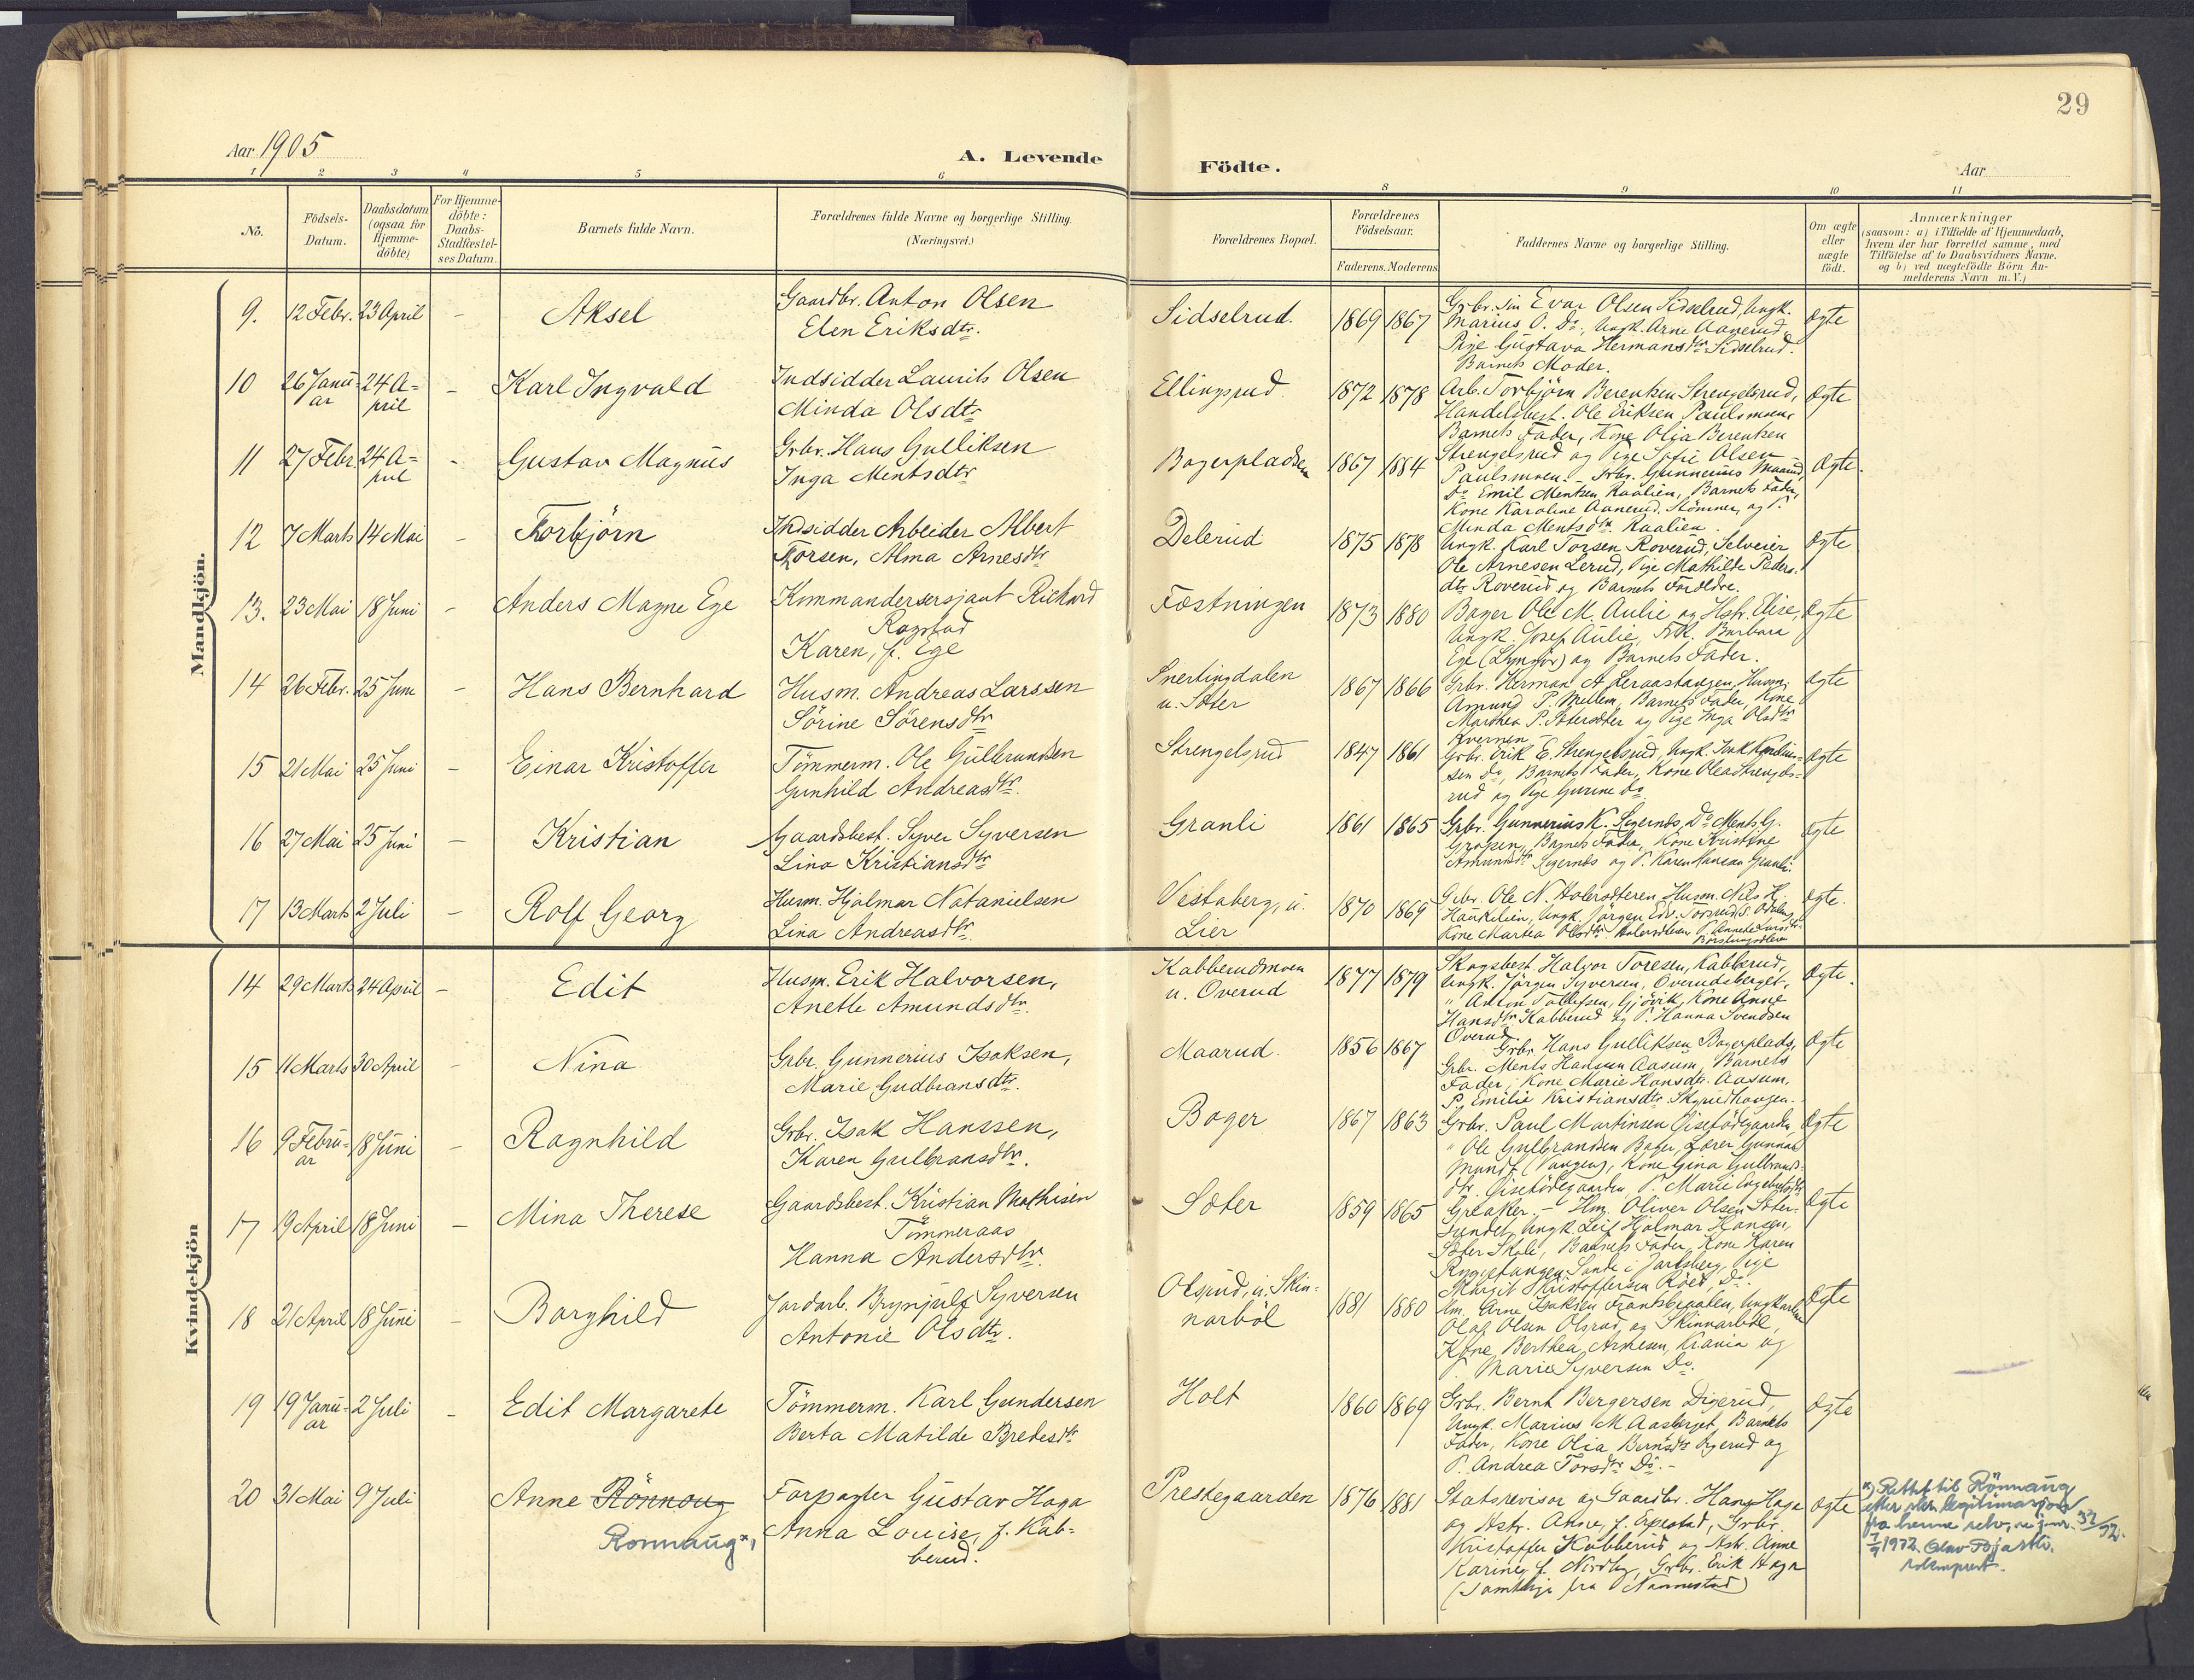 29
Aar 1905
A. Levende
Födte.
Aar
1 2 3 4 5 6 8 9 10 11
No.
Födsels-
Datum.
Daabsdatum
(ogsaa for
Hjemme-
döbte)
For Hjemme-
döbte:
Daabs-
Stadfæstel-
ses Datum.
Barnets fulde Navn.
Forældrenes fulde Navne og borgerlige Stilling.
(Næringsvei.)
Forældrenes Bopæl.
Forældrenes
Födselsaar.
Faderens. Moderens.
Faddernes Navne og borgerlige Stilling.
Om ægte
eller
uægte
födt.
Anmærkninger
(saasom: a) i Tilfælde af Hjemmedaab,
hvem der har forrettet samme, med
Tilföielse af to Daabsvidners Navne.
og b) ved uægtefödte Börn An-
melderens Navn m.V.)
Mandkjön.
9. 12 Febr. 23 April - Aksel
Gaardbr. Anton Olsen
Elen Eriksdtr.
Sidselrud. 1869 1867
Grbr. Sön Evar Olsen Sidselrud, Ungk.
Marius O. Do, Ungk. Arne Aanerud,
Pige Gustava Hermansdtr Sidselrud.
Barnets Moder.
Ægte
10 26 Janu-
ar 24 A-
pril - Karl Ingvald
Indsidder Laurits Olsen
Minda Olsdtr
Ellingsrud 1872 1878
Arb. Torbjörn Berentsen Strengelsrud,
Handelsbest. Ole Eriksen Paulsmoen,
Barnets Fader, Kone Olia Berentsen
Strengelsrud og Pige Sofie Olsen
Paulsmoen.
Ægte
11 27 Febr. 24 A-
pril - Gustav Magnus
Grbr. Hans Gulliksen
Inga Mentsdtr
Bagerpladsen 1867 1884
Grbr. Gunnerius Maarud,
Do Emil Mentsen Raalien, Barnets Fader,
Kone Karoline Aanerud. Strömmen, og P.
Minda Mentsdtr Raalien.
Ægte.
12 7 Marts 14 Mai - Torbjörn
Indsidder Arbeider Albert
Torsen, Alma Arnesdtr
Delerud 1875 1878
Ungk. Karl Torsen Roverud, Selveier
Ole Arnesen Lerud, Pige Mathilde Peders-
dtr Roverud og Barnets Forældre.
Ægte
13. 23 Mai 18 Juni - Anders Magne Ege
Kommandersersjant Richard
Rogstad
Karen, f. Ege
Fæstningen 1873 1880
Bager Ole M. Aulie og Hstr. Elise,
Ungk. Josef Aulie, Frk. Barbara
Ege (Lyngör) og Barnets Fader.
Ægte
14 26 Febr. 25 Juni - Hans Bernhard
Husm. Andreas Larssen
Sörine Sörensdtr
Snertingdalen
u. Sæter 1867 1866
Grbr. Herman A. Leraastangen, Husm.
Amund P. Mellem, Barnets Fader, Kone
Marthea P. Sætersæter og Pige Inga Olsdtr
Kvernen
Ægte
15 21 Mai 25 Juni - Einar Kristoffer
Tömmerm. Ole Gulbrandsen
Gunhild Andreasdtr.
Strengelsrud 1847 1861
Grbr. Erik E. Strengelsrud, Ungk. Isak Karelius-
sen do, Barnets Fader, Kone Olea Strengels-
rud og Pige Gurine do
Ægte
16 27 Mai 25 Juni - Kristian
Gaardsbest. Syver Syversen
Lina Kristiansdtr
Granli 1861 1865
Grbr. Gunnerius K. Sigernes, Do Ments G.
Grassen, Barnets Fader, Kone Kristine
Amundsdtr Sigernes og P. Karen Hansen Granli.
Ægte
17 13 Marts 2 Juli - Rolf Georg
Husm. Hjalmar Natanielsen
Lina Andreasdtr.
Vestaberg, u.
Lier 1870 1869
Grbr. Ole N. Holersæteren Husm. Nils K.
Haukelien, Ungk. Jörgen Edv. Torsrud, S. Odalen,
Kone Martea Olsdtr Holersæteren P. Annette Larsdtr
Börstingsæteren
Ægte.
Kvindekjön
14 29 Marts 24 April - Edit
Husm. Erik Halvorsen,
Anette Amundsdtr.
Kabberudmoen
u. Overud 1877 1879
Skogsbest. Halvor Toresen, Kabberud,
Ungk. Jörgen Syversen, Overudsberget,
" Anton Tollefsen, Gjövik, Kone Anne
Hansdtr Kabberud og P. Hanna Svendsen
Overud.
Ægte.
15 11 Marts 30 April - Nina
Grbr. Gunnerius Isaksen,
Marie Gudbransdtr.
Maarud. 1856 1867
Grbr. Hans Gulliksen Bagerplads,
Grbr. Ments Hansen Aasum, Barnets
Fader, Kone Marie Hansdtr. Aasum,
P. Emilie Kristiansdtr Skyrudhaugen.
Ægte
16 9 Febru-
ar 18 Juni - Ragnhild
Grbr. Isak Hanssen,
Karen Gulbransdtr.
Bager 1867 1863
Grbr. Paul Martinsen Öisetödegaarden
" Ole Gulbrandsen Bager, Lærer Gunnar
Mundt (Vangen), Kone Gina Gulbrands-
dtr. Öisetödegaarden, P. Marie Engebretsdtr
Greaker.
Ægte
17 19 April 18 Juni - Mina Therese
Gaardsbest. Kristian Mathisen
Tömmeraas
Hanna Andersdtr.
Sæter 1859 1865
Hm. Oliver Olsen Sæter-
sundet, Ungk. Leif Hjalmar Hansen,
Sæter Skole, Barnets Fader, Kone Karen
Ryggetangen, Sande i Jarlsberg, Pige
Margit Kristoffersen Röed, Do.
Ægte
18 21 April 18 Juni - Borghild
Jordarb. Brynjulf Syversen
Antonie Olsdtr.
Olsrud, u. Skin-
narböl 1881 1880
Hm. Arne Isaksen Frantsbraaten, Ungkarlene
Olaf Olsen Olsrud, og Skinnarböl,
Kone Berthea Arnesen, Krania og
P. Marie Syversen Do.
Ægte
19 19 Janu-
ar 2 Juli - Edit Margarete
Tömmerm. Karl Gundersen
Berta Matilde Bredesdtr
Holt 1860 1869
Grbr. Bernt Bergersen Digerud,
Ungk. Marius M. Aasberget, Barnets
Fader, Kone Olia Berntsdtr Digerud og
P. Andrea Torsdtr Do.-
Ægte
20 31 Mai 9 Juli Anne Rönnoug
Ronnaug x)
Forpagter Gustav Haga
Anna Louise, f. Kab-
berud.
Prestegaarden 1876 1881
Statsrevisor og Gaardbr. Hans Haga
og Hstr. Anne, f. Arpestad, Grbr.
Kristoffer Kabberud og Hstr. Anne
Karine, f. Nordby, Grbr. Erik Haga
(samtlige fra Nannestad)
Ægte
x) Rettet til Rönnaug
etter skr. legitimasjon
fra henne selv, se jour. 32/72.
1972. Olav
sokneprest.